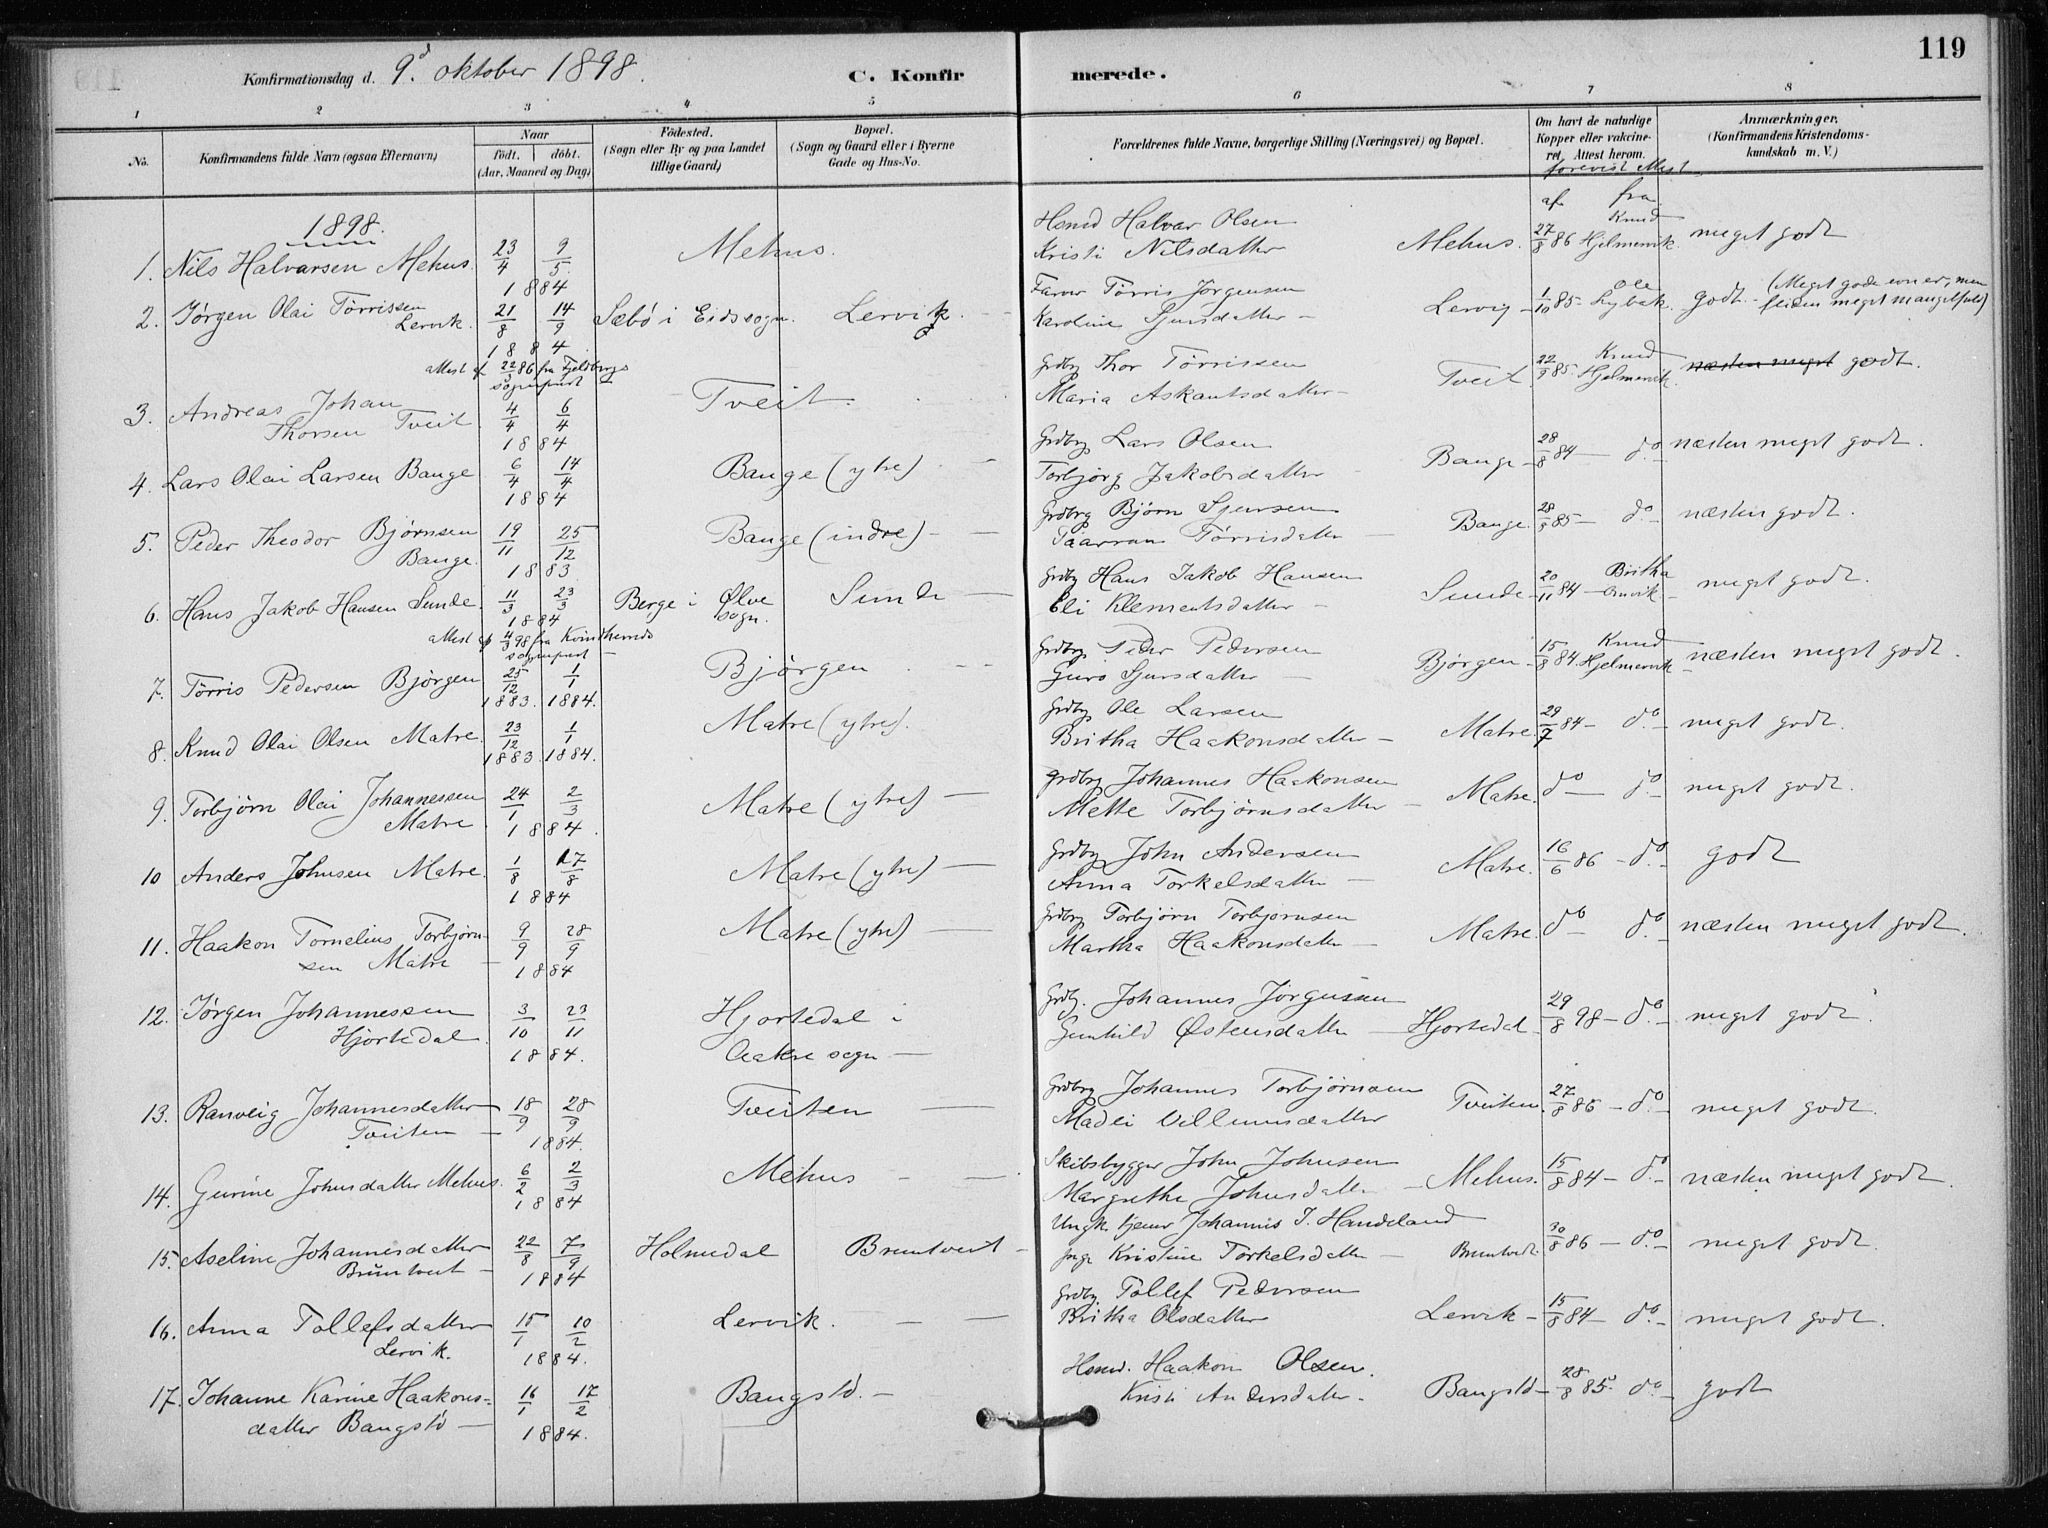 119
Konfirmationsdag d. 9d. oktober 1898.
C. Konfirmerede.
1 2 3 4 5 6 7 8
No.
Konfirmandens fulde Navn (ogsaa Efternavn)
Naar
födt. döbt.
(Aar, Maaned og Dag)
Födested.
(Sogn eller By og paa Landet
tillige Gaard)
Bopæl.
(Sogn og Gaard eller i Byerne
Gade og Hus-No.
Forældrenes fulde Navne, borgerlige Stilling (Næringsvei) og Bopæl.
Om havt de naturlige
Kopper eller vakcine-
ret, Attest herom.
Anmærkninger.
(Konfirmandens Kristendoms-
kundskab m. V.)
forevist Attest
af fra
1898.
1. Nils Halvarsen Mehus. 23/4 9/5 1884 Mehus. Hsmd Halvar Olsen
Kristi Nilsdatter Mehus. 27/8 86 Knud Hjelmervik. meget godt
2. Jørgen Olai Tørrissen
Lervik. 21/8 14/9 1884 Sæbö i Eids sogn. Lervik. Farver Törris Jörgensen
Karoline Sjursdatter Lervig 1/10 85 Ole godt. (Meget gode evner, men
fliden meget mangelfuld)
Attest af 22/3 86 fra Fjeldbergs
sogneprest
3. Andreas Johan
Thorsen Tveit 4/4 6/4 1884 Tveit. Grdbrg Thor Tørrissen
Maria Askautsdatter Tveit 22/9 85 Knud Hjelmervik næsten meget godt.
4. Lars Olai Larsen Bauge 6/4 14/4 1884 Bauge (ytre) Grdbrg Lars Olsen
Torbjörg Jakobsdatter Bauge 28/8 84 do næsten meget godt.
5. Peder Theodor Bjørnsen
Bauge. 19/11 25/12 1883 Bauge (indre) Grdbrg Bjørn Sjursen
Tørrisdatter Bauge. 28/8 85 do næsten godt.
6. Hans Jakob Hansen Sunde. 11/3 23/3 1884 Berge i Ølve
sogn. Sunde Grdbrg Hans Jakob Hansen
Eli Klementsdatter Sunde 20/11 84 Britha meget godt.
Attest af 4/3 98 fra Kvindherreds
sogneprest
7. Tørris Pedersen Bjørgen 25/12 1883. 1/1 1884. Bjørgen Grdbrg Peder Pedersen
Guro Sjursdatter Bjørgen 15/8 84 Knud Hjelmervik næsten meget godt.
8. Knud Olai Olsen Matre. 23/12 1883. 1/1 1884. Matre (ytre). Grdbrg Ole Larsen
Britha Haakonsdatter Matre 29/7 84 do meget godt.
9. Torbjørn Olai Johannessen
Matre. 24/1 2/3 1884. Matre (ytre) Grdbrg Johannes Haakonsen
Mette Torbjørnsdatter Matre. do do meget godt.
10 Anders Johnsen Matre. 1/8 17/8 1884 Matre (ytre) Grdbrg John Andersen
Anna Torkelsdatter Matre. 16/6 86 do godt
11. Haakon Tornelius Torbjørn-
sen Matre 9/9 28/9 1884 Matre (ytre) Grdbrg Torbjørn Torbjørnsen
Martha Haakonsdatter Matre. do do næsten meget godt.
12. Jørgen Johannessen
Hjortedal. 3/10 23/11 1884. Hjortedal i
Aakre sogn Grdbr. Johannes Jørgensen
Gunhild Østensdatter Hjortedal 29/8 98 do meget godt.
13. Ranveig Johannesdatter
Tveiten 18/9 28/9 1884. Tveiten Grdbrg Johannes Torbjørnsen
Madei Villumsdatter Tveiten 27/8 86 do meget godt.
14. Gurine Johnsdatter Mehus. 6/2 2/3 1884 Mehus Skibsbygger John Johnsen
Margrethe Johnsdatter Mehus. 15/8 84 do næsten meget godt.
15. Aseline Johannesdatter
Bruntveit 22/8 7/9 1884 Holmedal Bruntveit Ungk. tjener Johannes J. Handeland
Pige Kristine Torkelsdatter Bruntvedt. 30/8 86 do meget godt
16. Anna Tollefsdatter
Lervik. 15/1 10/2 1884. Lervik. Grdbrg Tollef Pedersen
Britha Olsdatter Lervik 15/8 84 do meget godt.
17. Johanne Karine Haakons-
datter Baugstö 16/1 17/2 1884. Baugstö. Hsmd. Haakon Olsen.
Kristi Andersdatter Baugstö 28/8 85. do godt